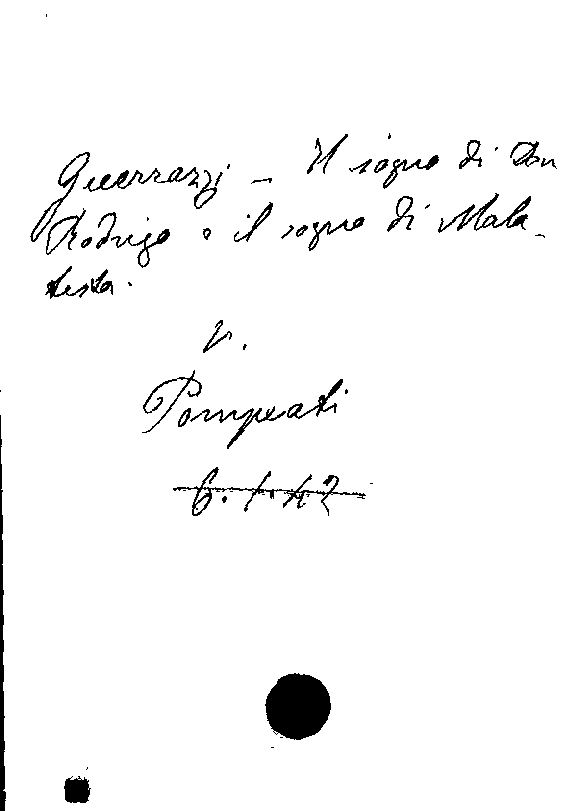 Guerrazzi - Il sogno di Don
Rodrigo e il sogno di Mala-
testa.
V.
Pompeati
6.1.42